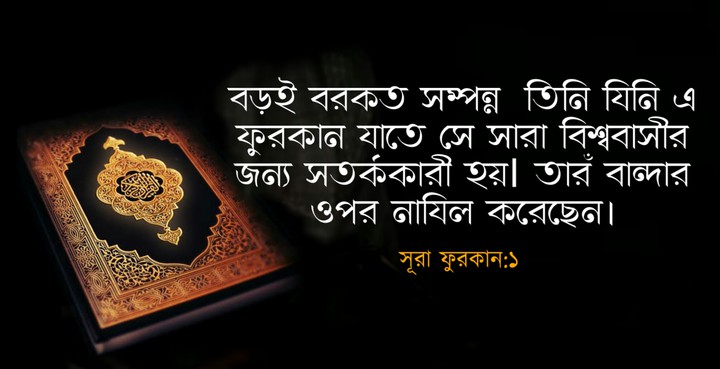 বড়ই বরকত সম্পন্ন তিনি যিনি এ
ফুরকান যাতে সে সারা বিশ্ববাসীর
জন্য সতর্ককারী হয়। তারঁ বান্দার
ওপর নাযিল করেছেন।
সূরা ফুরকান:১